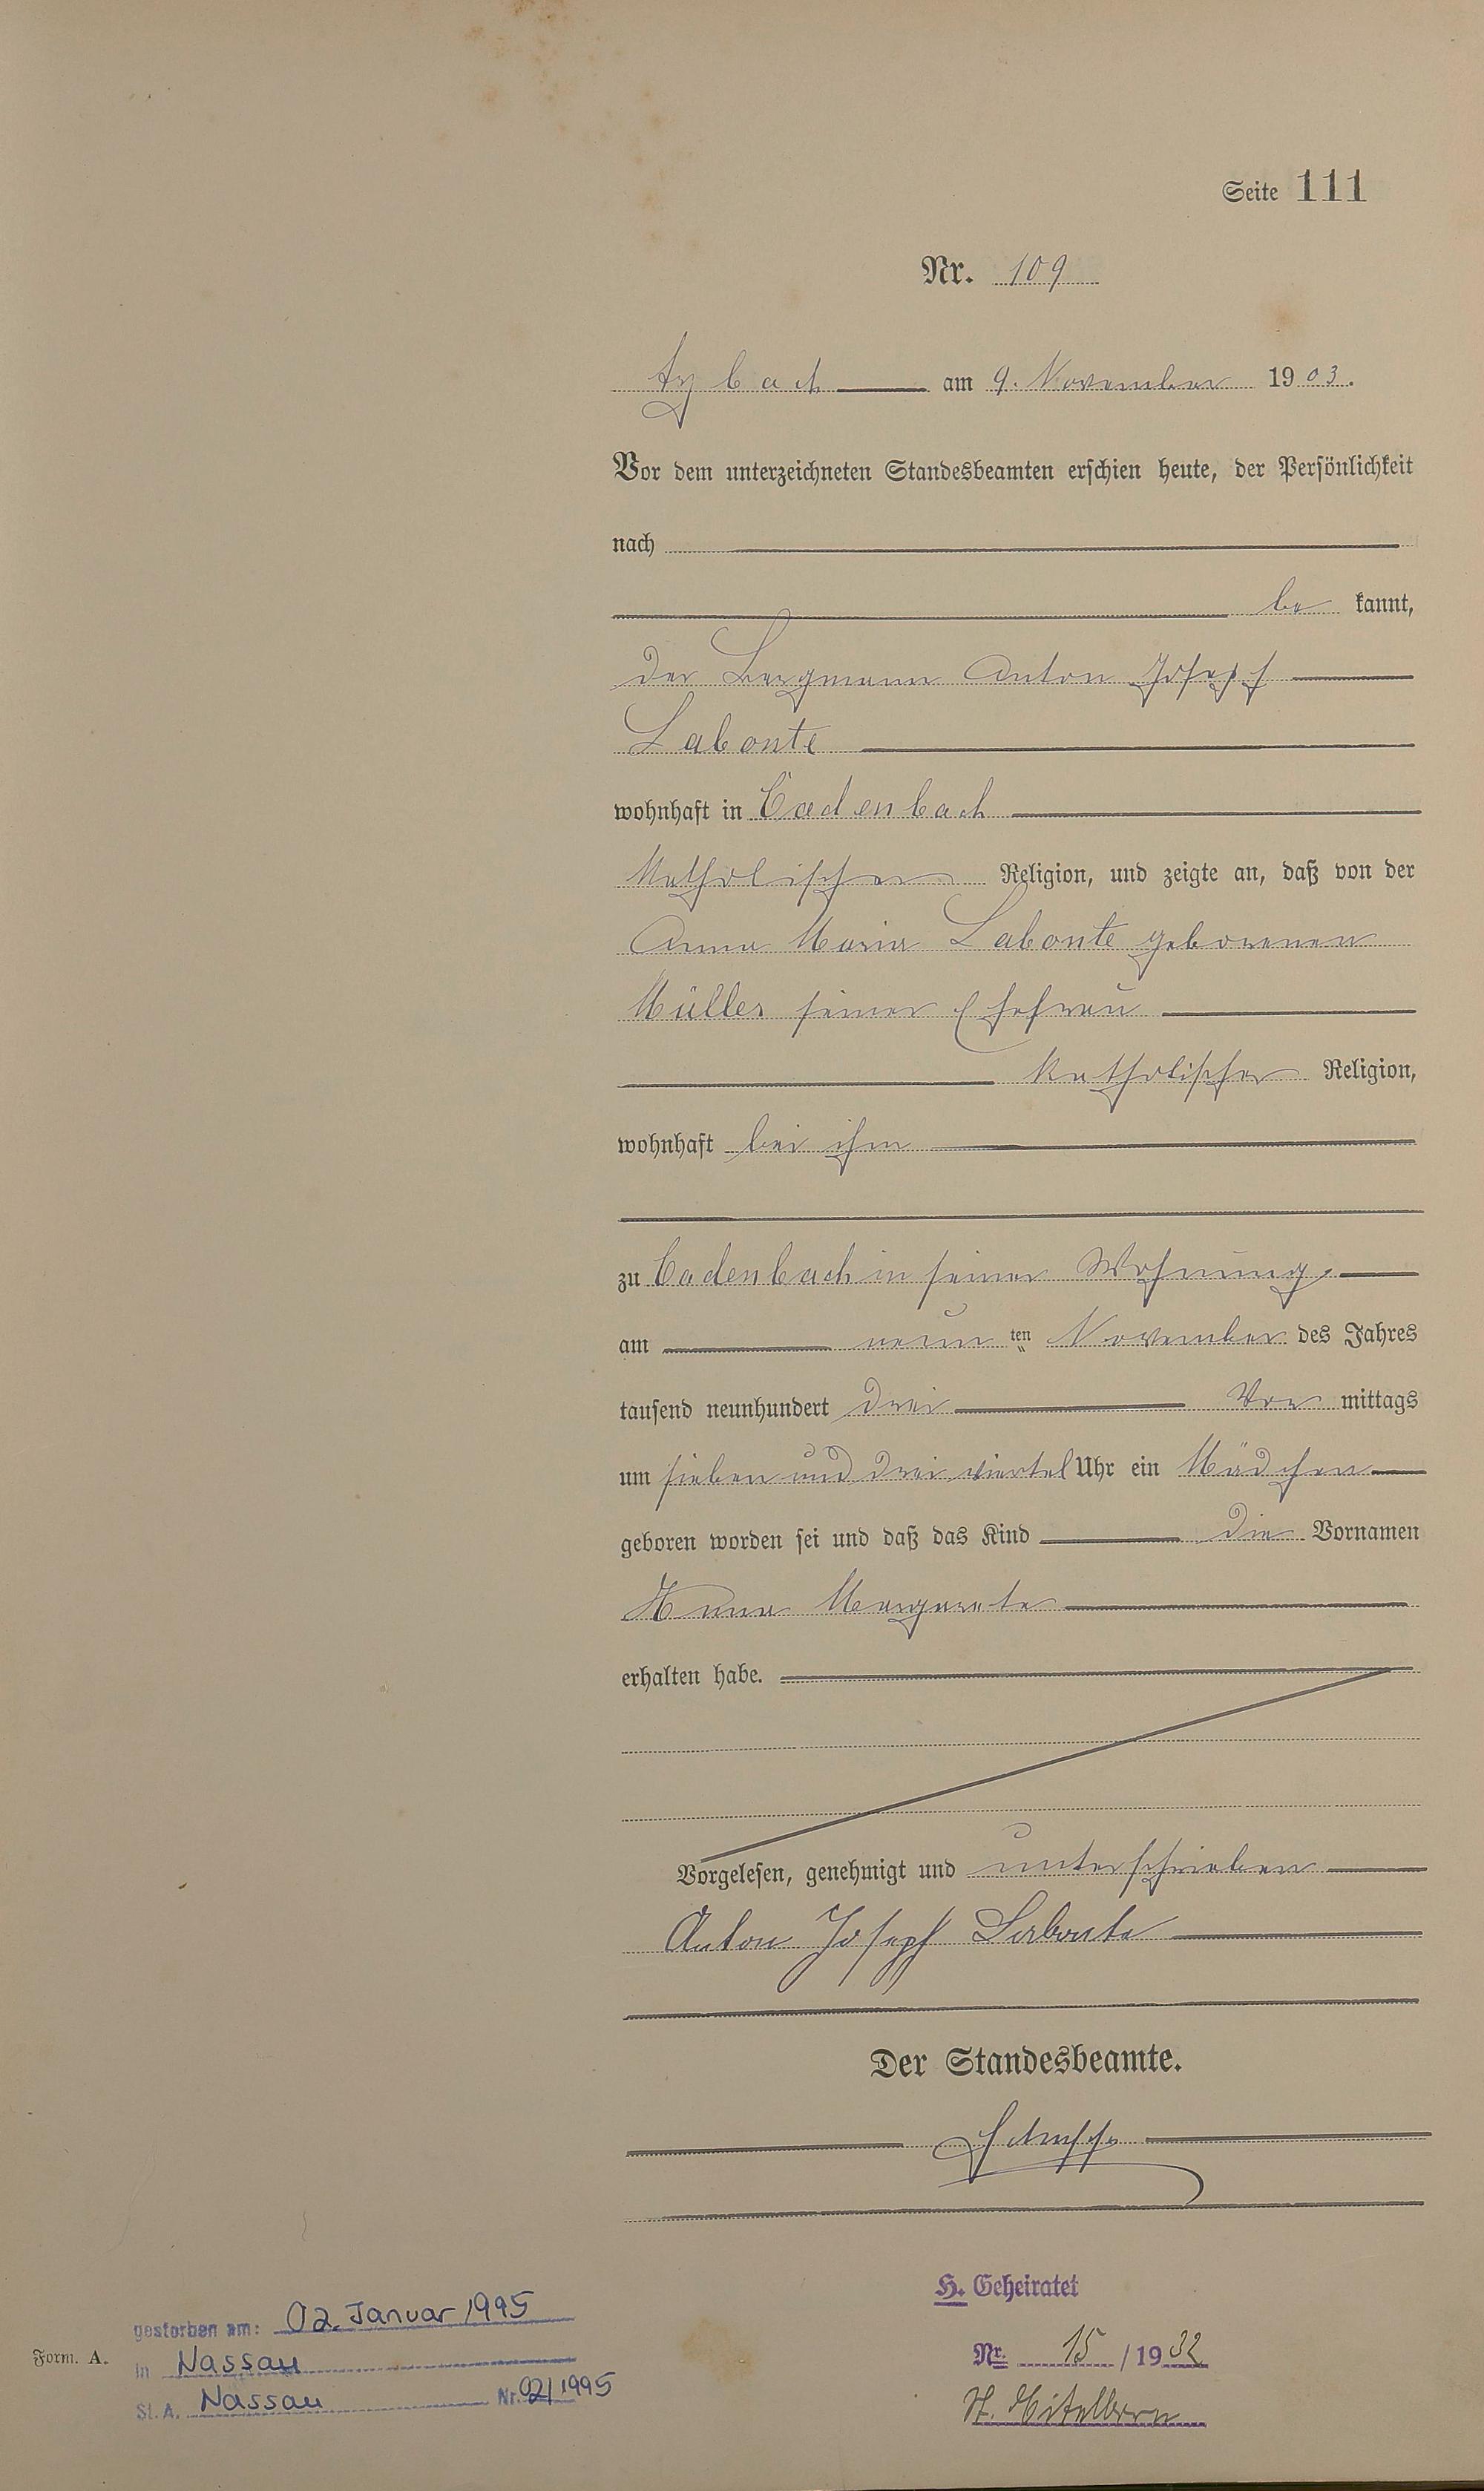 Seite 111
Nr. 109
Arzbach am 9. November 1903.
Vor dem unterzeichneten Standesbeamten erschien heute, der Persönlichkeit
nach
be kannt,
der Bergmann Anton Josef
Labonte
wohnhaft in Cadenbach
katholischer Religion, und zeigte an, daß von der
Anna Maria Labonte geborenen
Müller seiner Ehefrau
katholischer Religion,
wohnhaft bei ihm
zu Cadenbach in seiner Wohnung,
am neun ten November des Jahres
tausend neunhundert drei Vor mittags
um sieben und drei viertel Uhr ein Mädchen
geboren worden sei und daß das Kind die Vornamen
Anna Margareta
erhalten habe.
Vorgelesen, genehmigt und unterschrieben
Anton Josepf Labonte
Der Standesbeamte.
H. Geheiratet
Nr. 15 / 1932
gestorben am: 02. Januar 1995
in Nassau
St. A. Nassau Nr. 02/1995
Form. A.